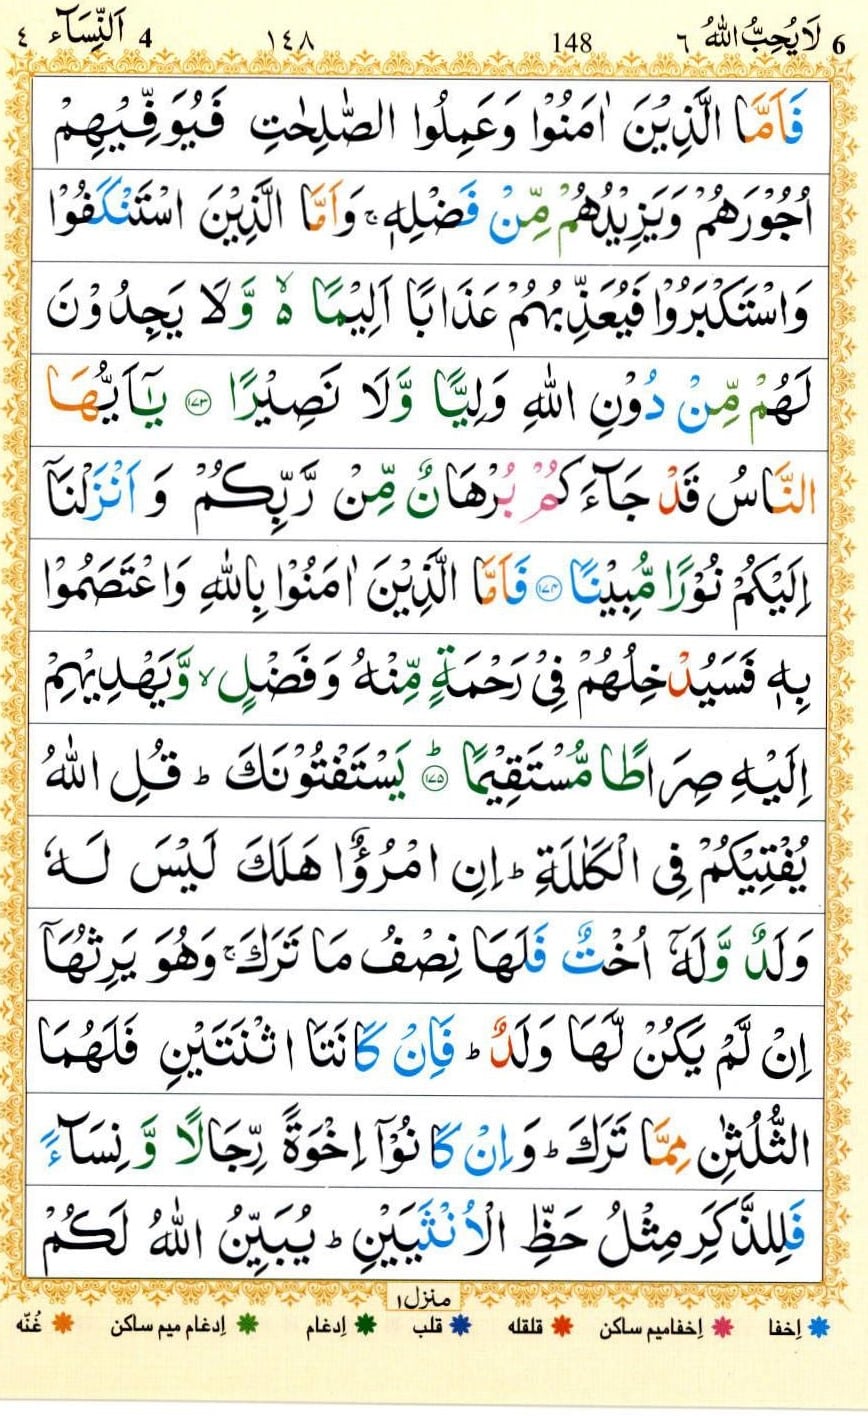 6 لَا يُحِبُّ اللّٰهُ ٦ 148 ١٤٨ 4 اَلنِّسَآء ٤
فَاَمَّا الَّذِيْنَ اٰمَنُوْا وَعَمِلُوا الصّٰلِحٰتِ فَيُوَفِّيْهِمْ
اُجُوْرَهُمْ وَيَزِيْدُهُمْ مِّنْ فَضْلِهٖ ۚ وَاَمَّا الَّذِيْنَ اسْتَنْكَفُوْا
وَاسْتَكْبَرُوْا فَيُعَذِّبُهُمْ عَذَابًا اَلِيْمًا ۙ۬ وَّلَا يَجِدُوْنَ
لَهُمْ مِّنْ دُوْنِ اللّٰهِ وَلِيًّا وَّلَا نَصِيْرًا ۝۱۷۳ يٰۤاَيُّهَا
النَّاسُ قَدْ جَآءَكُمْ بُرْهَانٌ مِّنْ رَّبِّكُمْ وَ اَنْزَلْنَاۤ
اِلَيْكُمْ نُوْرًا مُّبِيْنًا ۝۱۷۴ فَاَمَّا الَّذِيْنَ اٰمَنُوْا بِاللّٰهِ وَاعْتَصَمُوْا
بِهٖ فَسَيُدْخِلُهُمْ فِيْ رَحْمَةٍ مِّنْهُ وَفَضْلٍ ۙ وَّيَهْدِيْهِمْ
اِلَيْهِ صِرَاطًا مُّسْتَقِيْمًا ؕ۝۱۷۵ يَسْتَفْتُوْنَكَ ؕ قُلِ اللّٰهُ
يُفْتِيْكُمْ فِي الْكَلٰلَةِ ؕ اِنِ امْرُؤٌا هَلَكَ لَيْسَ لَهٗ
وَلَدٌ وَّلَهٗۤ اُخْتٌ فَلَهَا نِصْفُ مَا تَرَكَ ۚ وَهُوَ يَرِثُهَاۤ
اِنْ لَّمْ يَكُنْ لَّهَا وَلَدٌ ؕ فَاِنْ كَانَتَا اثْنَتَيْنِ فَلَهُمَا
الثُّلُثٰنِ مِمَّا تَرَكَ ؕ وَاِنْ كَانُوْۤا اِخْوَةً رِّجَالًا وَّنِسَآءً
فَلِلذَّكَرِ مِثْلُ حَظِّ الْاُنْثَيَيْنِ ؕ يُبَيِّنُ اللّٰهُ لَكُمْ
منزل۱
اِخفا اِخفامیم ساکن قلقله قلب اِدغام اِدغام میم ساکن غُنّه